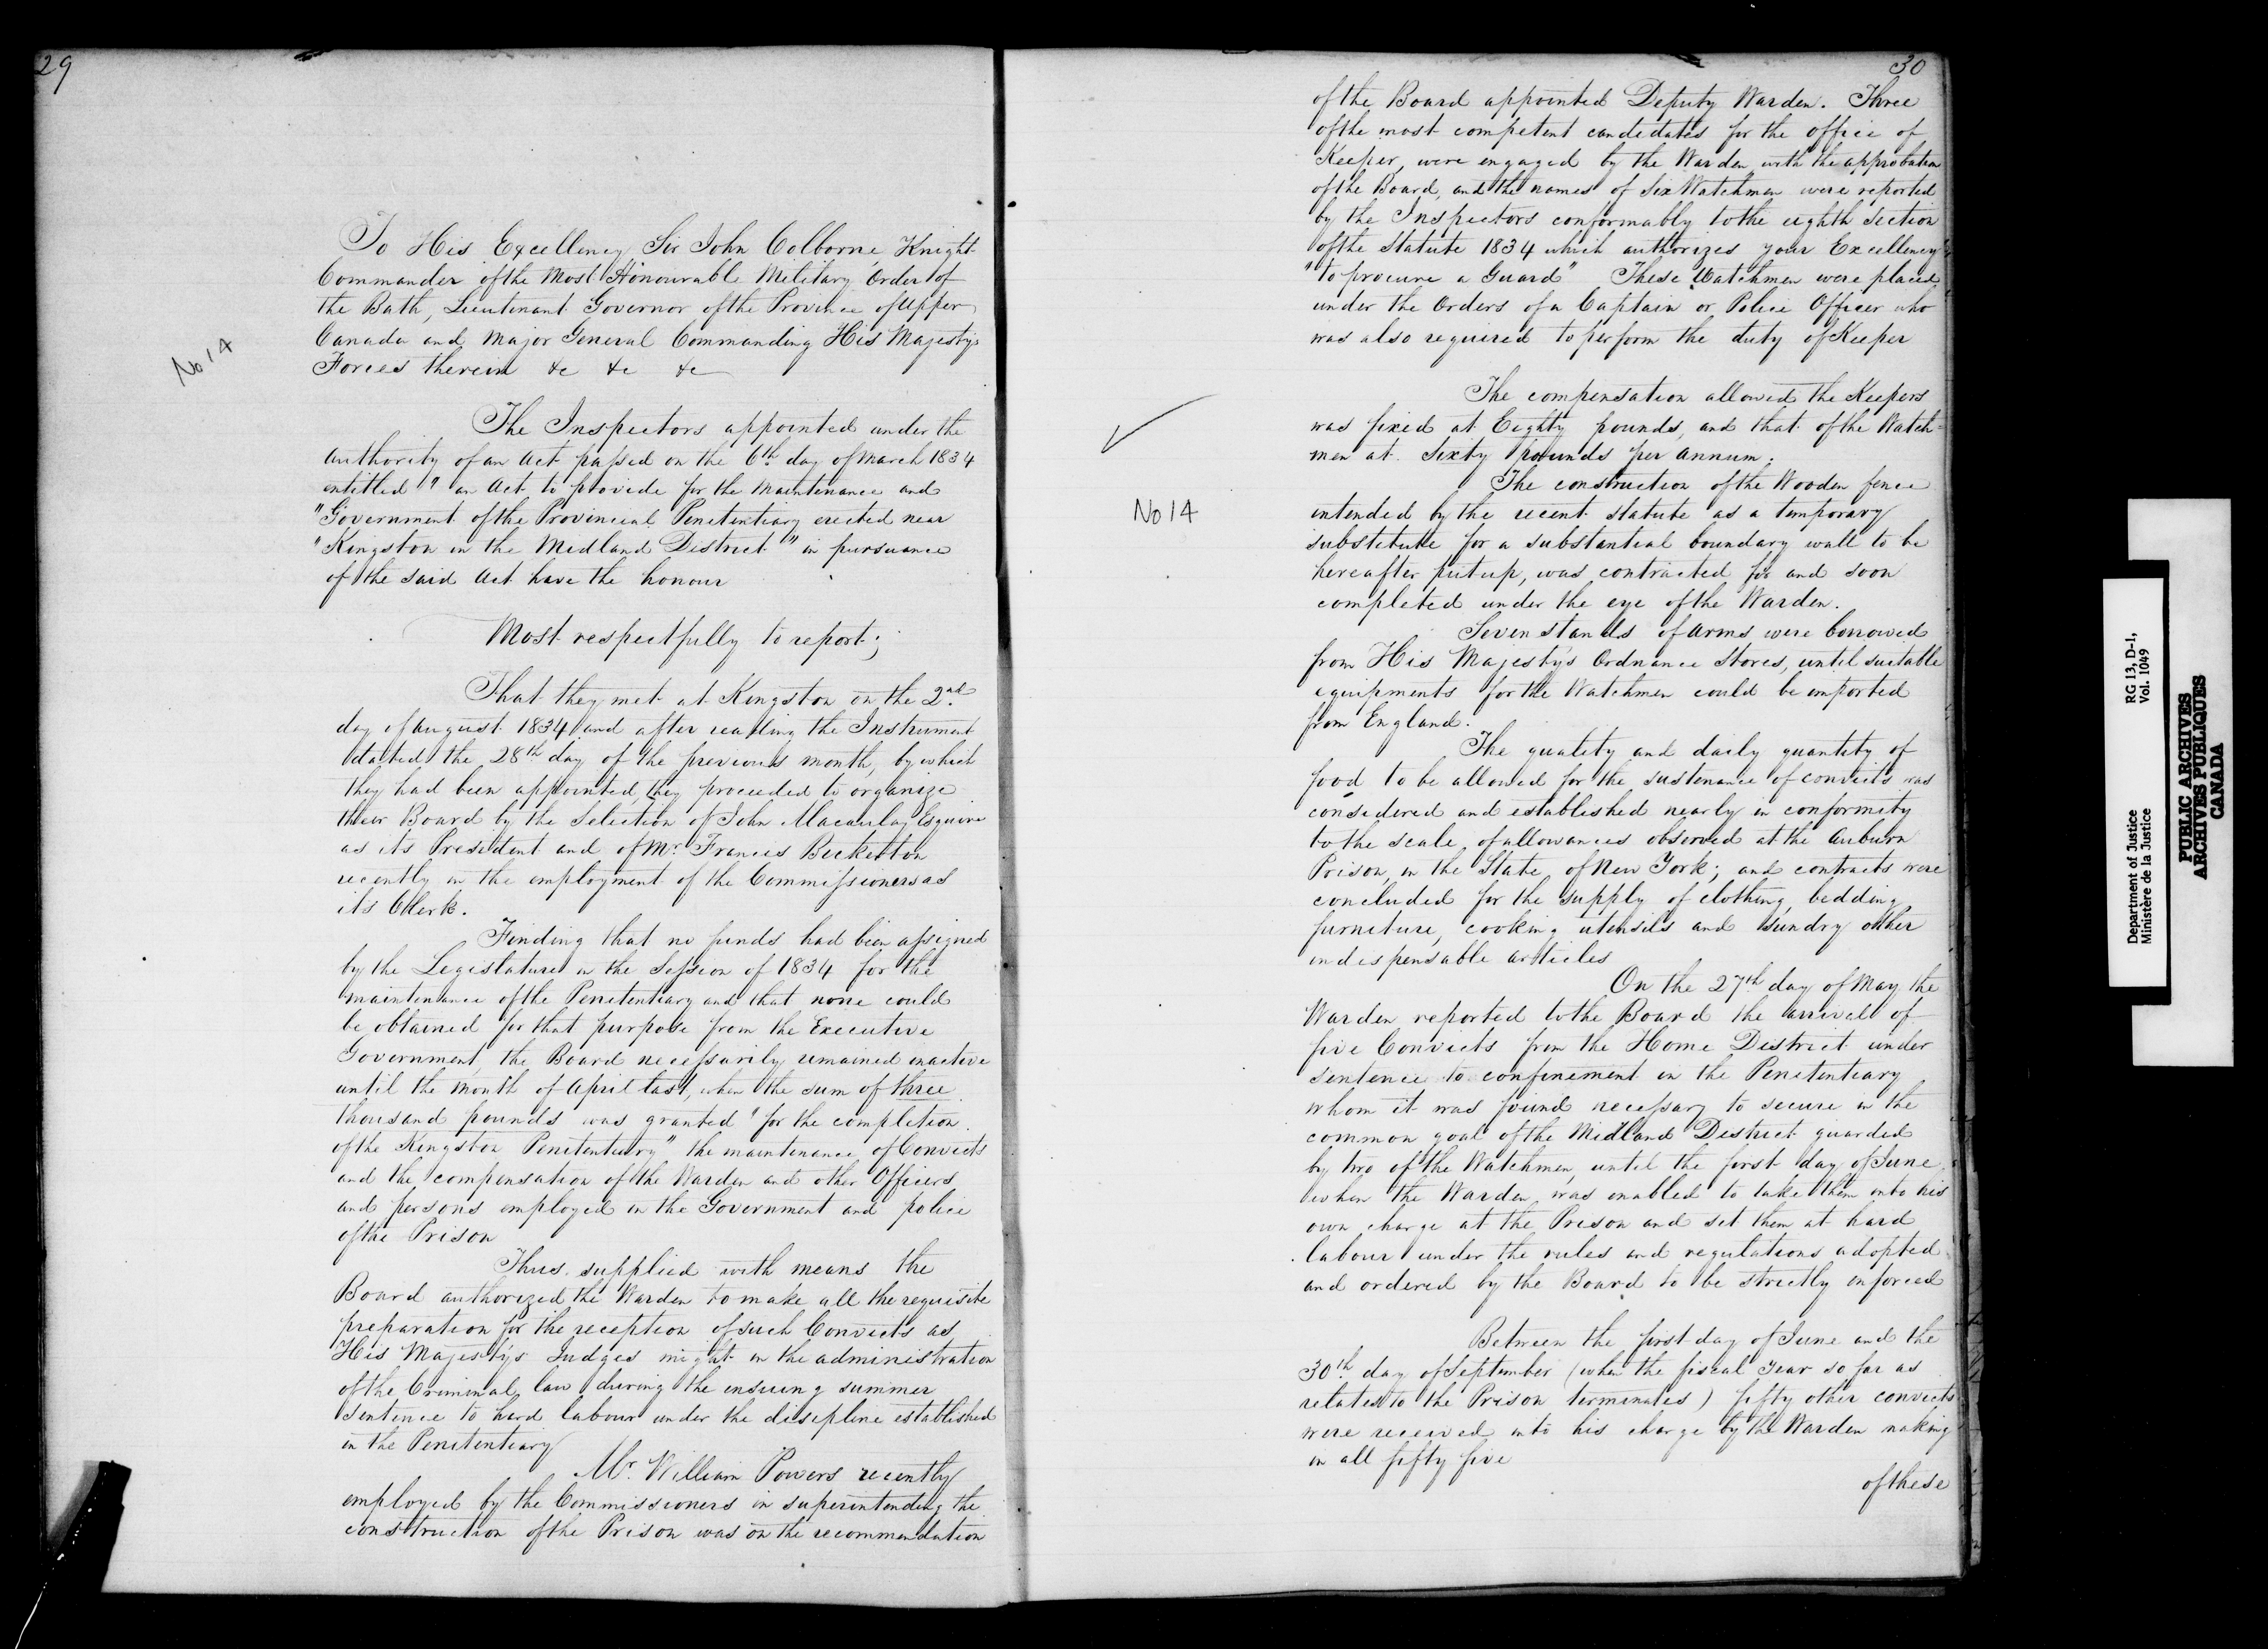 29
No 14
To His Excellency Sir John Colborne, Knight
Commander of the Most Honourable Military Order of
the Bath, Lieutenant Governor of the Province of Upper
Canada and Major General Commanding His Majestys
Forces therein &c &c &c
The Inspectors appointed under the
Authority of an Act passed on the 6th day of March 1834
entitled "an Act to provide for the Maintenance and
"Government of the Provincial Penitentiary erected near
"Kingston in the Midland District" in pursuance
of the said Act have the honour
Most respectfully to report;
That they met at Kingston on the 2nd
day of August 1834 and after reading the Instrument
dated the 28th day of the previous month, by which
they had been appointed, they proceeded to organize
their Board by the Selection of John Macaulay Esquire
as its President and of Mr. Francis Bickerton
recently in the employment of the Commissioners as
its Clerk.
Finding that no funds had been assigned
by the Legislature in the Session of 1834 for the
maintenance of the Penitentiary and that none could
be obtained for that purpose from the Executive
Government, the Board necessarily remained inactive
until the month of April last, when the sum of three
thousand pounds was granted "for the completion
of the Kingston Penitentiary" the maintenance of Convicts
and the compensation of the Warden and other Officers
and persons employed in the Government and police
of the Prison
Thus supplied with means the
Board authorized the Warden to make all the requisite
preparation for the reception of such Convicts as
His Majesty's Judges might in the administration
of the Criminal law during the ensuing summer
Sentence to hard labour under the discipline established
in the Penitentiary
Mr. William Powers recently
employed by the Commissioners in superintending the
construction of the Prison was on the recommendation
30
of the Board appointed Deputy Warden. Three
of the most competent candidates for the office of
Keeper, were engaged by the Warden, with the approbation
of the Board, and the names of Six Watchmen were reported
by the Inspectors conformably to the eighth Section
of the Statute 1834 which authorizes your Excellency
"to procure a Guard" These Watchmen were placed
under the Orders of a Captain or Police Officer who
was also required to perform the duty of Keeper
The compensation allowed the Keepers
was fixed at Eighty pounds, and that of the Watch=
men at Sixty pounds per annum.
No 14
The construction of the Wooden fence
intended by the recent statute as a temporary
substitute for a substantial boundary wall to be
hereafter put up, was contracted for and soon
completed under the eye of the Warden.
Seven stands of Arms were borrowed
from His Majesty's Ordnance Stores, until suitable
equipments for the Watchmen could be imported
from England.
The quality and daily quantity of
food to be allowed for the sustenance of convicts was
considered and established nearly in conformity
to the scale of allowances observed at the Auburn
Prison, in the State of New York; and contracts were
concluded for the supply of clothing, bedding
furniture, cooking utensils and sundry other
indispensable articles
On the 27th day of May the
Warden reported to the Board the arrival of
five Convicts from the Home District under
sentence to confinement in the Penitentiary
whom it was found necessary to secure in the
common goal of the Midland District guarded
by two of the Watchmen, until the first day of June
when the Warden was enabled to take them into his
own charge at the Prison and set them at hard
labour under the rules and regulations adopted
and ordered by the Board to be strictly inforced
Between the first day of June and the
30th day of September (when the fiscal Year so far as
relates to the Prison terminates) fifty other convicts
were received into his charge by the Warden making
in all fifty five
of these
Department of Justice
Ministère de la Justice
RG 13, D-1,
Vol. 1049
PUBLIC ARCHIVES
ARCHIVES PUBLIQUES
CANADA